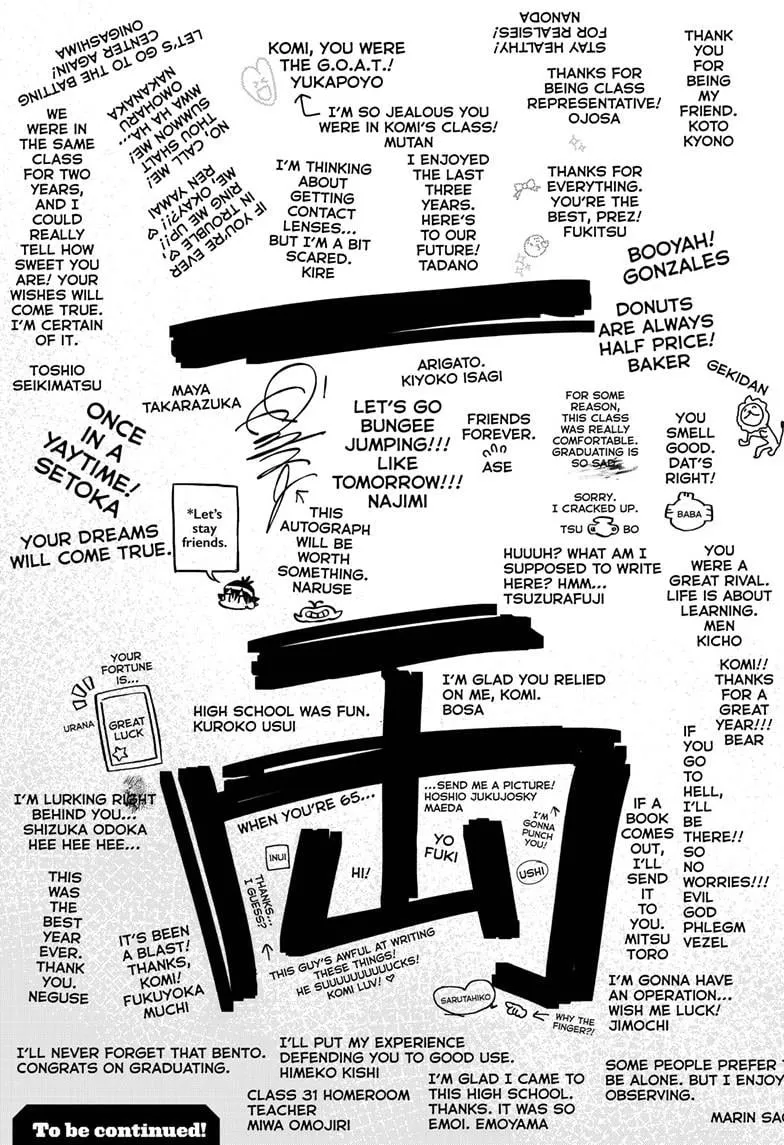 LET'S GO TO THE BATTING
CENTER AGAIN!
ONIGASHIMA
NO, CALL ME!
THOU SHALT
SUMMON ME!
MWA HA HA...
OMOHARU
NAKANAKA
IF YOU'RE EVER
IN TROUBLE,
RING ME UP!! ♡
ME, OKAY?! ♡
REN YAMAI
KOMI, YOU WERE
THE G.O.A.T.!
YUKAPOYO
I'M SO JEALOUS YOU
WERE IN KOMI'S CLASS!
MUTAN
STAY HEALTHY!
FOR REALSIES!
NANODA
THANKS FOR
BEING CLASS
REPRESENTATIVE!
OJOSA
THANK
YOU
FOR
BEING
MY
FRIEND.
KOTO
KYONO
WE
WERE IN
THE SAME
CLASS
FOR TWO
YEARS,
AND I
COULD
REALLY
TELL HOW
SWEET YOU
ARE! YOUR
WISHES WILL
COME TRUE.
I'M CERTAIN
OF IT.
TOSHIO
SEIKIMATSU
I'M THINKING
ABOUT
GETTING
CONTACT
LENSES...
BUT I'M A BIT
SCARED.
KIRE
I ENJOYED
THE LAST
THREE
YEARS.
HERE'S
TO OUR
FUTURE!
TADANO
THANKS FOR
EVERYTHING.
YOU'RE THE
BEST, PREZ!
FUKITSU
BOOYAH!
GONZALES
DONUTS
ARE ALWAYS
HALF PRICE!
BAKER
GEKIDAN
MAYA
TAKARAZUKA
ARIGATO.
KIYOKO ISAGI
ONCE
IN A
YAYTIME!
SETOKA
LET'S GO
BUNGEE
JUMPING!!!
LIKE
TOMORROW!!!
NAJIMI
FRIENDS
FOREVER.
ASE
FOR SOME
REASON,
THIS CLASS
WAS REALLY
COMFORTABLE.
GRADUATING IS
SO SAD.
SORRY.
I CRACKED UP.
TSU BO
YOU
SMELL
GOOD.
DAT'S
RIGHT!
BABA
YOUR DREAMS
WILL COME TRUE.
*Let's
stay
friends.
THIS
AUTOGRAPH
WILL BE
WORTH
SOMETHING.
NARUSE
HUUUH? WHAT AM I
SUPPOSED TO WRITE
HERE? HMM...
TSUZURAFUJI
YOU
WERE A
GREAT RIVAL.
LIFE IS ABOUT
LEARNING.
MEN
KICHO
YOUR
FORTUNE
IS...
URANA
GREAT
LUCK
HIGH SCHOOL WAS FUN.
KUROKO USUI
I'M GLAD YOU RELIED
ON ME, KOMI.
BOSA
KOMI!!
THANKS
FOR A
GREAT
YEAR!!!
BEAR
IF
YOU
GO
TO
HELL,
I'LL
BE
THERE!!
SO
NO
WORRIES!!!
EVIL
GOD
PHLEGM
VEZEL
I'M LURKING RIGHT
BEHIND YOU...
SHIZUKA ODOKA
HEE HEE HEE...
WHEN YOU'RE 65...
...SEND ME A PICTURE!
HOSHIO JUKUJOSKY
MAEDA
I'M
GONNA
PUNCH
YOU!
USHI
YO
FUKI
HI!
INUI
THANKS...
I GUESS?
THIS GUY'S AWFUL AT WRITING
THESE THINGS!
HE SUUUUUUUUUCKS!
KOMI LUV! ♡
IF A
BOOK
COMES
OUT,
I'LL
SEND
IT
TO
YOU.
MITSU
TORO
THIS
WAS
THE
BEST
YEAR
EVER.
THANK
YOU.
NEGUSE
IT'S BEEN
A BLAST!
THANKS,
KOMI!
FUKUYOKA
MUCHI
SARUTAHIKO
WHY THE
FINGER?!
I'M GONNA HAVE
AN OPERATION...
WISH ME LUCK!
JIMOCHI
I'LL NEVER FORGET THAT BENTO.
CONGRATS ON GRADUATING.
I'LL PUT MY EXPERIENCE
DEFENDING YOU TO GOOD USE.
HIMEKO KISHI
CLASS 31 HOMEROOM
TEACHER
MIWA OMOJIRI
I'M GLAD I CAME TO
THIS HIGH SCHOOL.
THANKS. IT WAS SO
EMOI. EMOYAMA
SOME PEOPLE PREFER
BE ALONE. BUT I ENJOY
OBSERVING.
MARIN
To be continued!